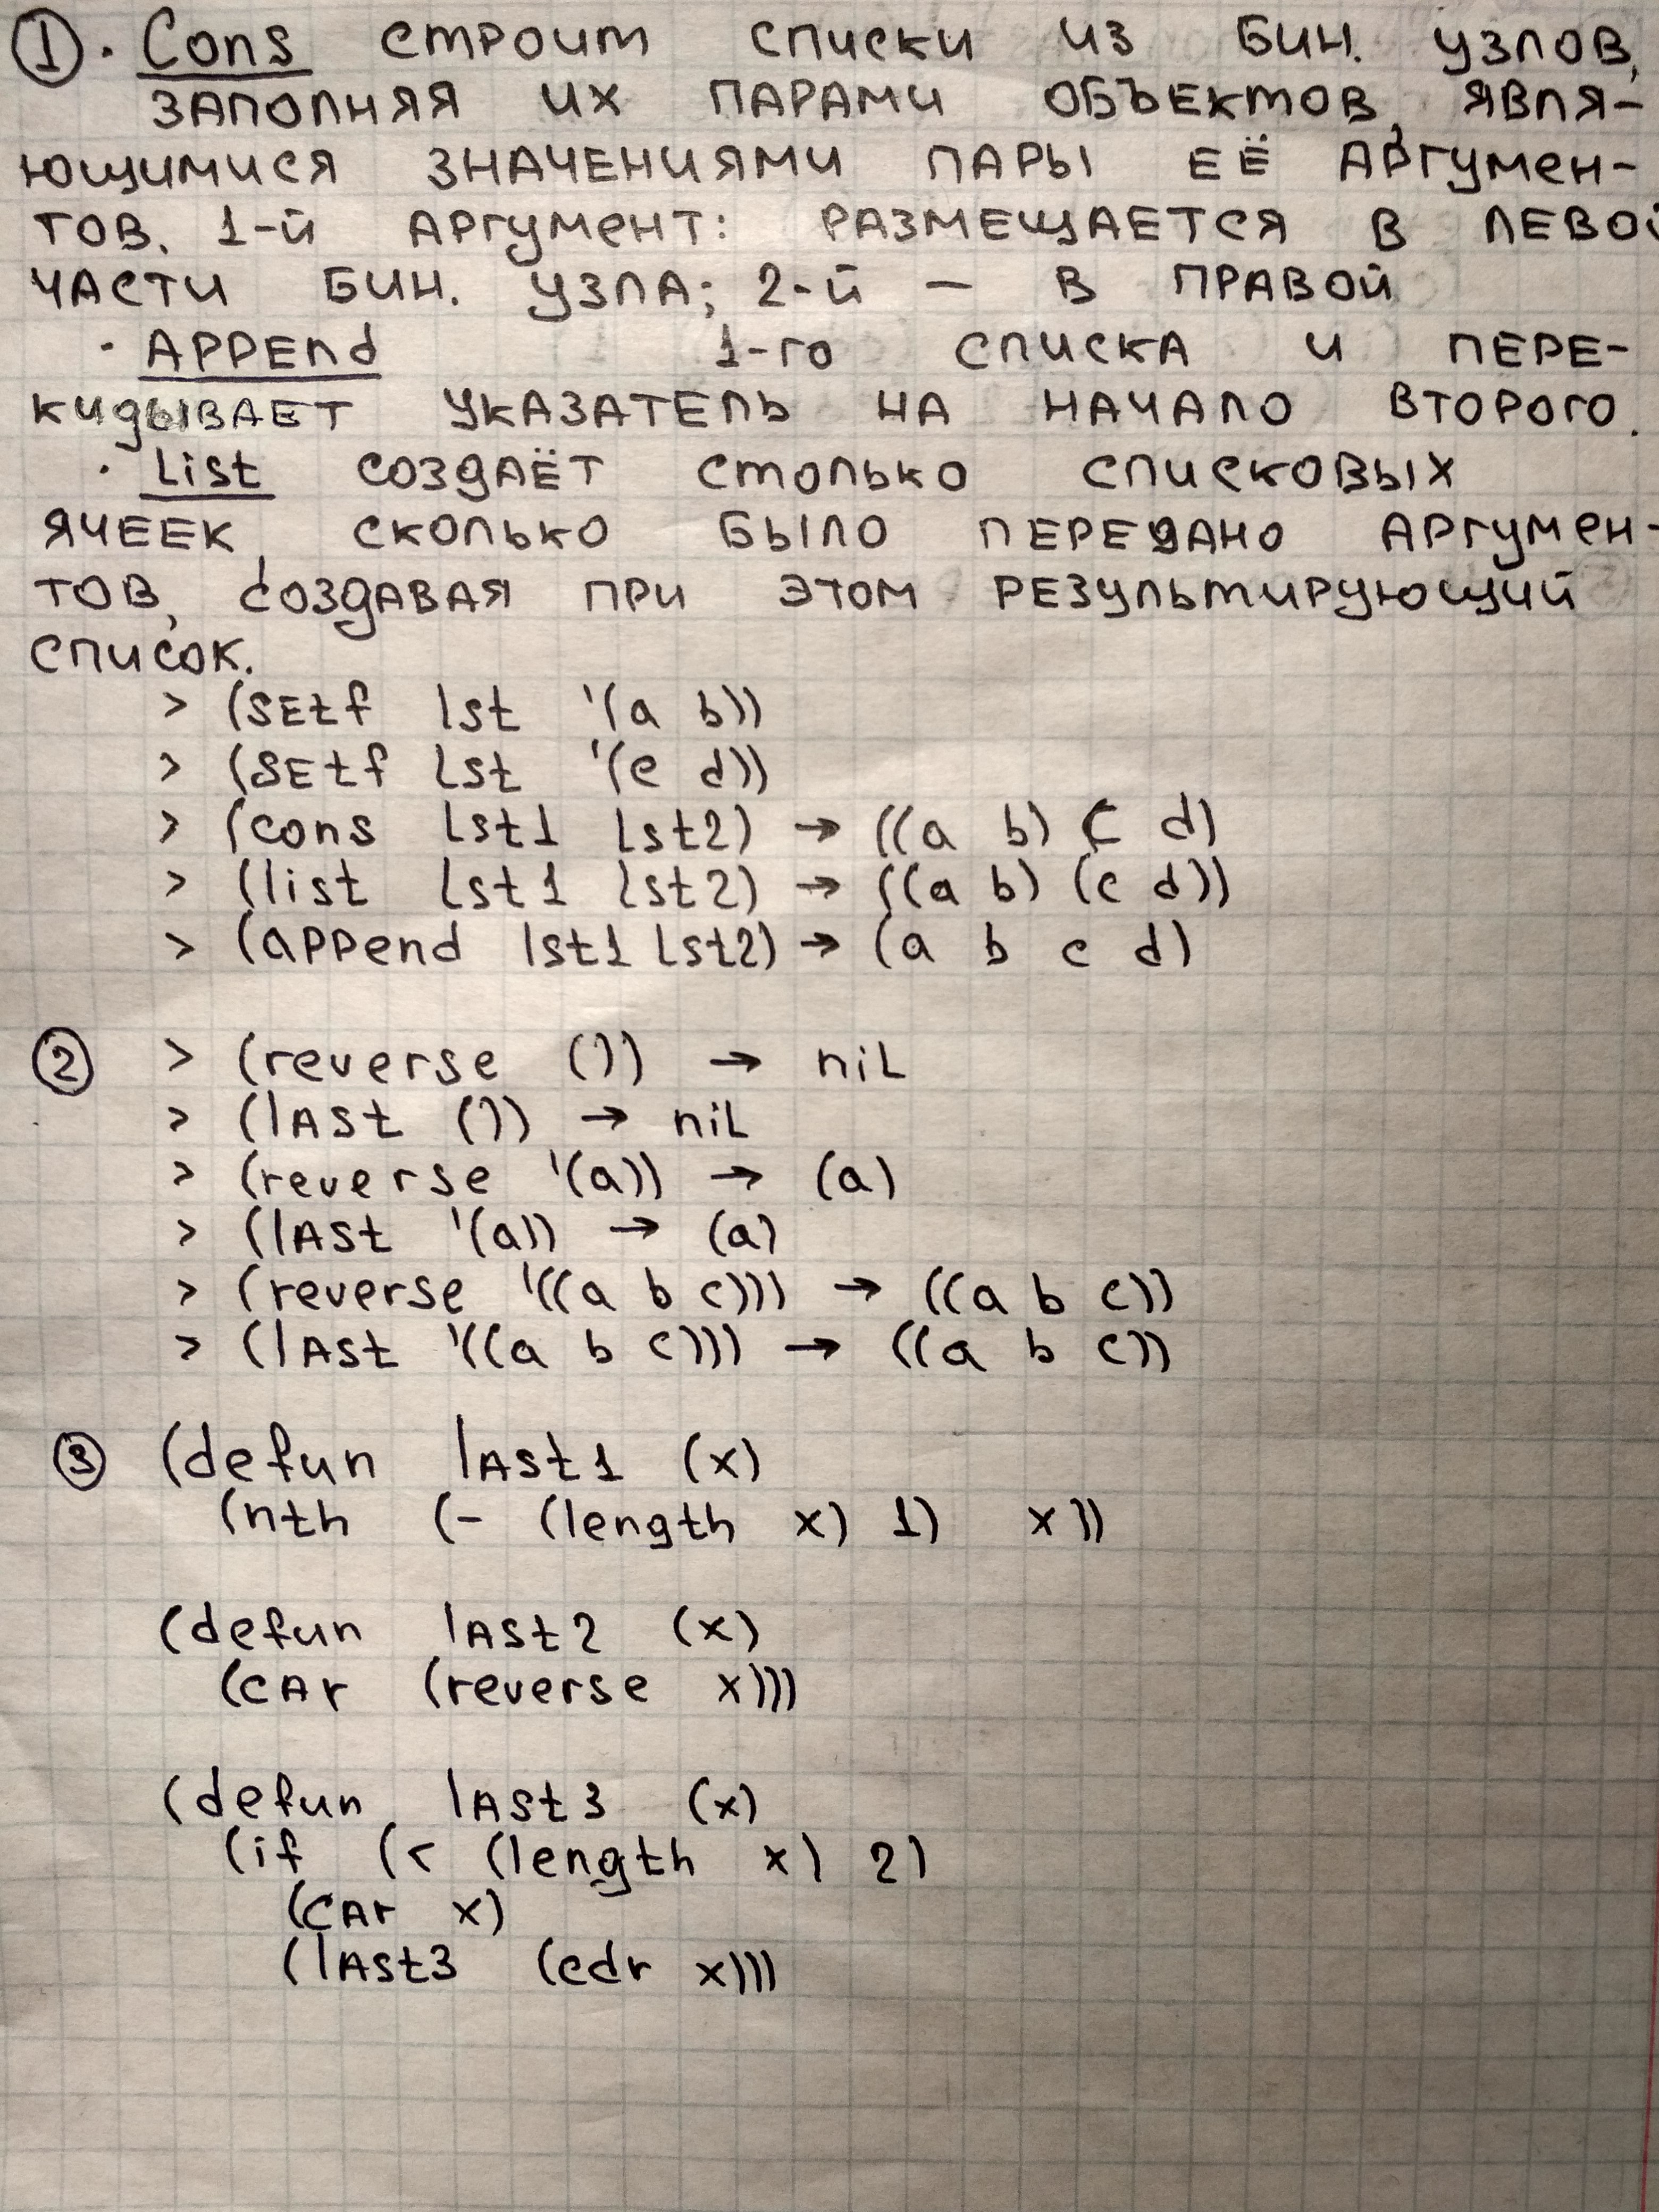 ① · Cons строит списки из бин. узлов,
заполняя их парами объектов, явля-
ющимися значениями пары её аргумен-
тов. 1-й аргумент: размещается в левой
части бин. узла; 2-й – в правой
· Append 1-го списка и пере-
кидывает указатель на начало второго.
· List создаёт столько списковых
ячеек, сколько было передано аргумен-
тов, создавая при этом результирующий
список.
> (setf lst '(a b))
> (setf lst '(c d))
> (cons lst1 lst2) → ((a b) c d)
> (list lst1 lst2) → ((a b) (c d))
> (append lst1 lst2) → (a b c d)
② > (reverse ()) → nil
> (last ()) → nil
> (reverse '(a)) → (a)
> (last '(a)) → (a)
> (reverse '((a b c))) → ((a b c))
> (last '((a b c))) → ((a b c))
③ (defun last1 (x)
(nth (- (length x) 1) x))
(defun last2 (x)
(car (reverse x)))
(defun last3 (x)
(if (< (length x) 2)
(car x)
(last3 (cdr x)))